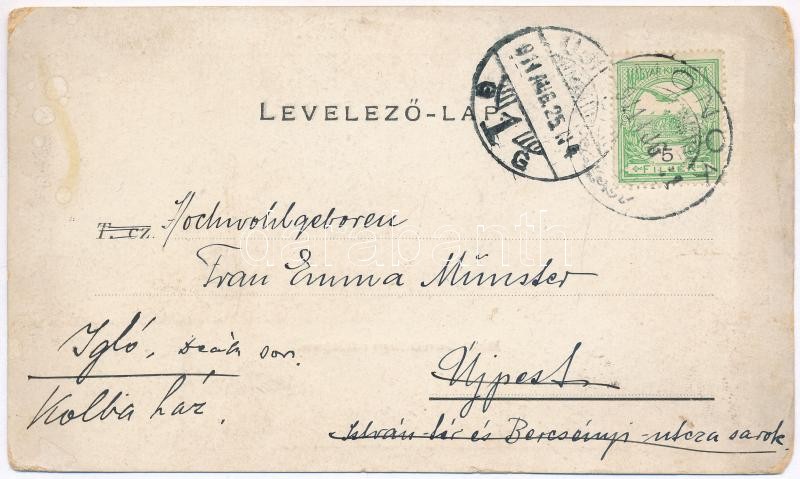 LEVELEZŐ-LAP
MAGYAR KIR. POSTA
5
FILLÉR
ONOK
911 AUG. 25. N4
IGLÓ
T. cz. Hochwohlgeboren
Frau Emma Münster
Igló, Deák sor.
Kolba ház.
Újpest
István tér és Bercsényi-utcza sarok.
darabanth